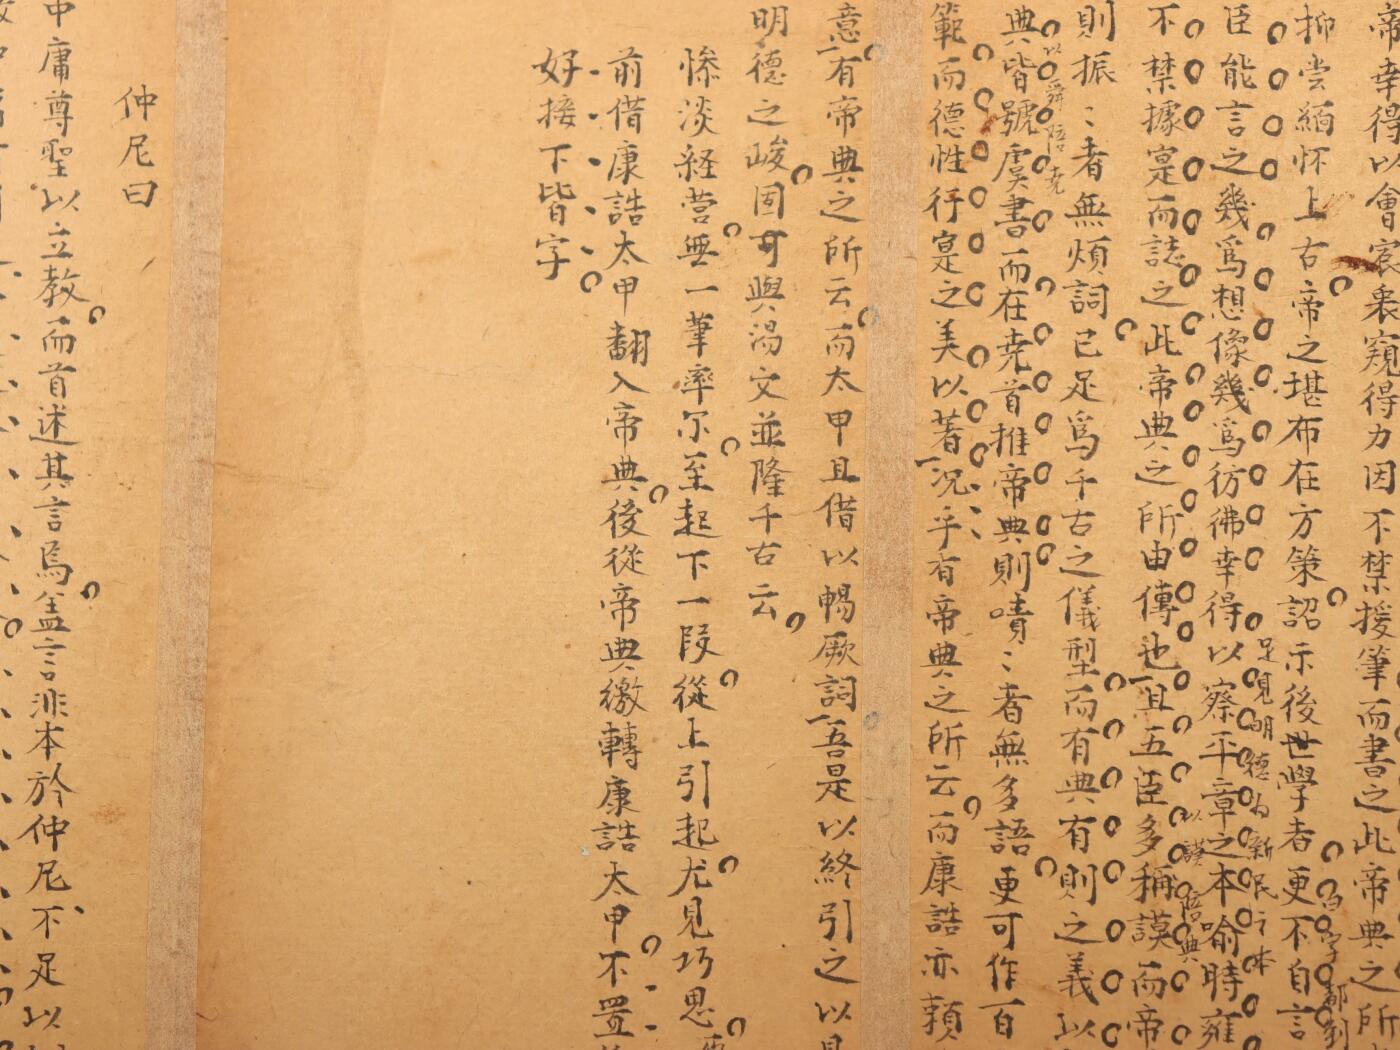 帝幸得以會宸衷窺得力因不禁援筆而書之此帝典之所
抑尝緬怀上古帝之堪布在方策詔示後世學者更不自言
臣能言之幾爲想像幾爲彷彿幸得以察平章之本喻時雍
足見明德为新民之本
不禁據寔而誌之此帝典之所由傳也且五臣多稱謨而帝
以謨陪典
則振〻者無煩詞已足爲千古之儀型而有典有則之義以
以舜陪尭
典皆號虞書而在尭首推帝典則嘖〻者無多語更可作百
範而德性行寔之美以著况乎有帝典之所云而康誥亦賴
意有帝典之所云而太甲且借以暢厥詞吾是以終引之以
明德之峻固可與湯文並隆千古云
惨淡経营無一筆率尔至起下一段從上引起尤見巧思
前借康誥太甲翻入帝典後從帝典繳轉康誥太甲不置
好接下皆字
仲尼曰
中庸尊聖以立教而首述其言焉盖言非本於仲尼不足以